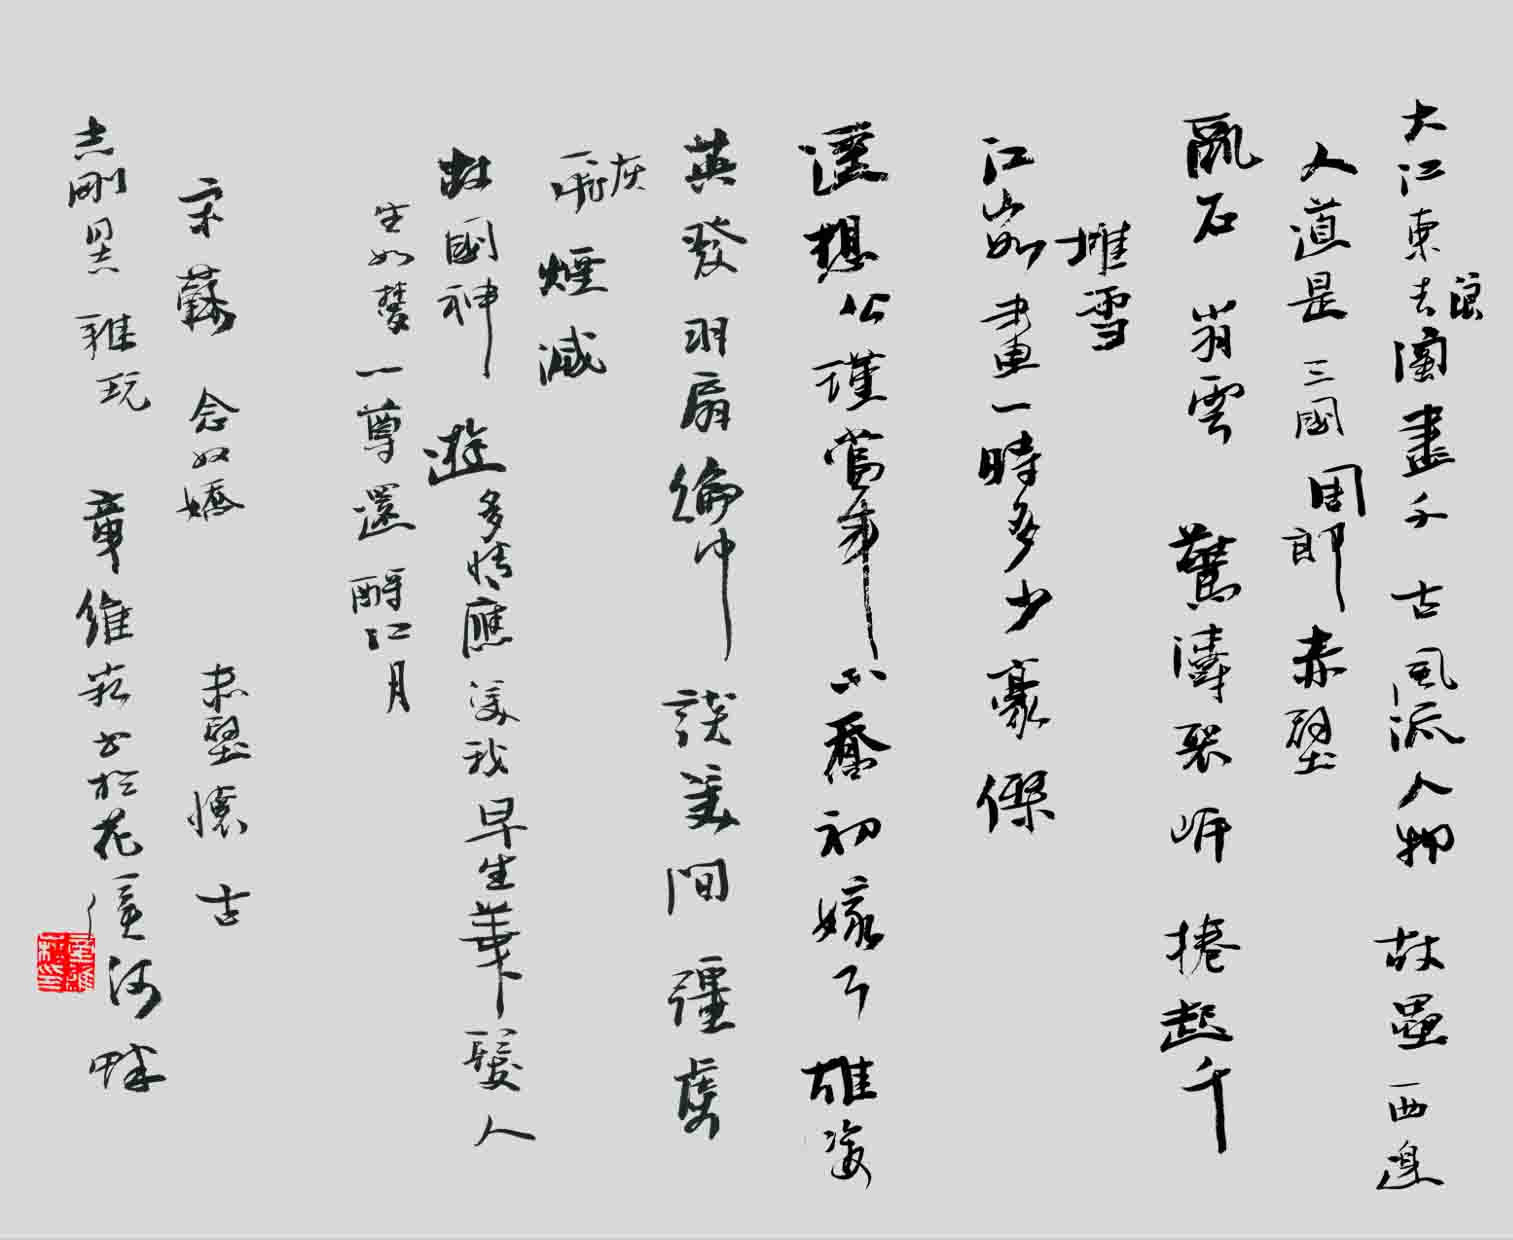 大江東去浪淘盡千古風流人物故壘西邊
人道是三國周郎赤壁
亂石崩雲驚濤裂岸捲起千
堆雪
江山如畫一時多少豪傑
遙想公瑾當年小喬初嫁了雄姿
英發羽扇綸巾談笑間強虜
灰飛煙滅
故國神遊多情應笑我早生華髮人
生如夢一尊還酹江月
宋蘇念奴嬌赤壁懷古
志剛墨雅玩章維崧書於花溪河畔